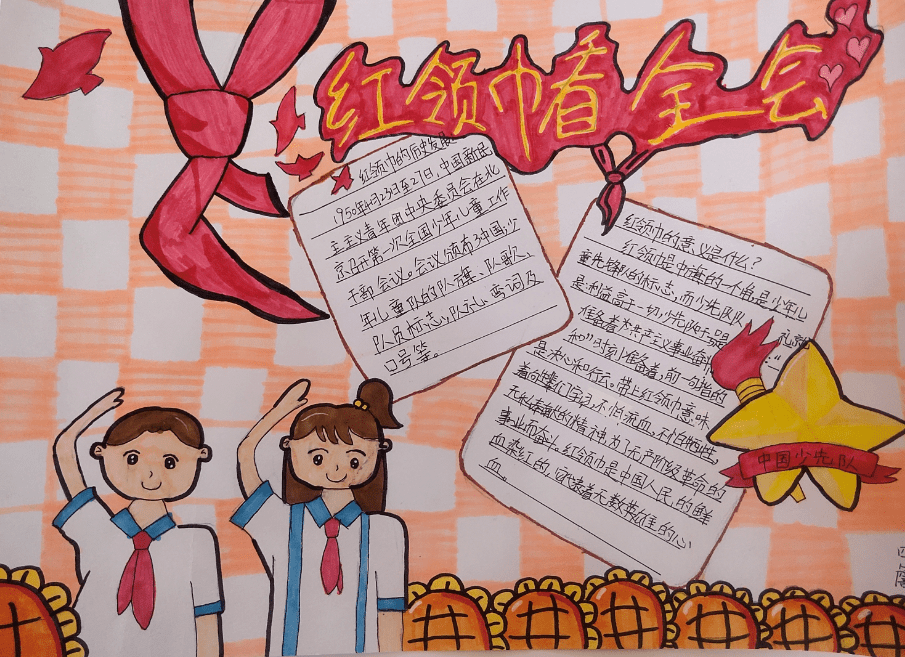 红领巾看全会
红领巾的历史发展
1950年4月23日至27日，中国新民
主主义青年团中央委员会在北
京召开第一次全国少年儿童工作
干部会议。会议颁布了中国少
年儿童队的队旗、队歌、
队员标志、队礼、
口号等。
红领巾的意义是什么？
红领巾是队旗的一角是少年儿
童先锋队的标志，而少先队队
是利益高于一切，少先队
准备着为共产主义事业奋
和"时刻准备着，前一句指的
是决心和行云。带上红领巾意味
着向雄们学习不怕流血，不怕牺牲
无私奉献的精神为了无产阶级革命的
事业而奋斗。红领巾是中国人民的鲜
血染红的，它代表着无数英雄的心
血。
中国少先队